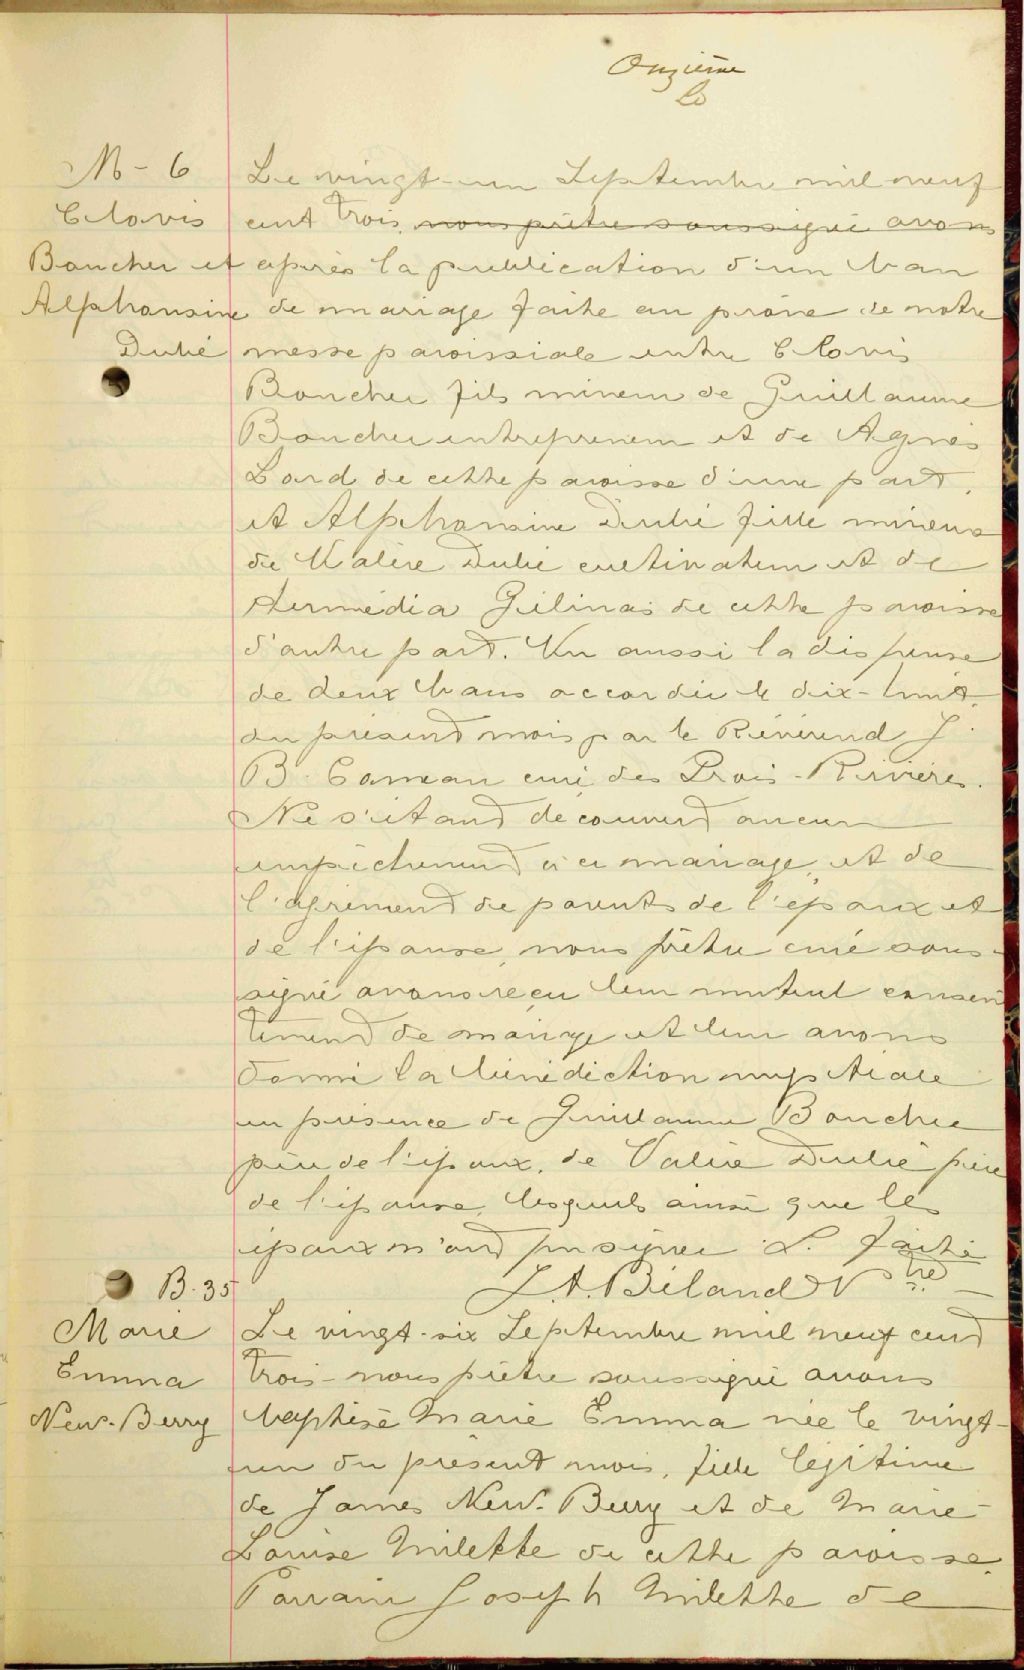 Onzième
M - 6
Clovis
Boucher et
Alphonsine
Dubé
Le vingt-un Septembre mil neuf
cent trois, nous prêtre soussigné avons
après la publication d'un ban
de mariage faite au prône de notre
messe paroissiale entre Clovis
Boucher fils mineur de Guillaume
Boucher entrepreneur et de Agnès
Lord de cette paroisse d'une part,
et Alphonsine Dubé fille mineure
de Valère Dubé cultivateur et de
Hermédia Gélinas de cette paroisse
d'autre part. Vu aussi la dispense
de deux bans accordée le dix-huit
du présent mois par le Révérend J.
B. Comeau curé des Trois-Rivières.
Ne s'étant découvert aucun
empêchement à ce mariage, et de
l'agrément de parents de l'époux et
de l'épouse, nous prêtre curé sous-
signé avons reçu leur mutuel consen
tement de mariage et leur avons
donné la bénédiction nuptiale
en présence de Guillaume Boucher
père de l'époux, de Valère Dubé père
de l'épouse, lesquels ainsi que les
époux n'ont pu signer. L. faite
J. A. Béland Ptre
B. 35
Marie
Emma
New-Berry
Le vingt-six Septembre mil neuf cent
trois - nous prêtre soussigné avons
baptisé Marie Emma née le vingt-
un du présent mois, fille légitime
de James New-Berry et de Marie-
Louise Milette de cette paroisse.
Parrain Joseph Milette de